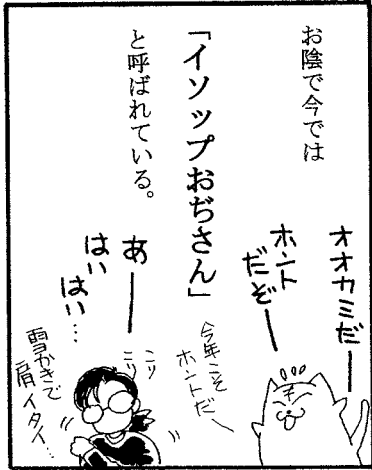 お陰で今では
「イソップおぢさん」
と呼ばれている。
オオカミだ――
ホント
だぞ――
今年こそ
ホントだ〜
あ――
はい
はい…
コリ
コリ
雪かきで
肩イタイ…